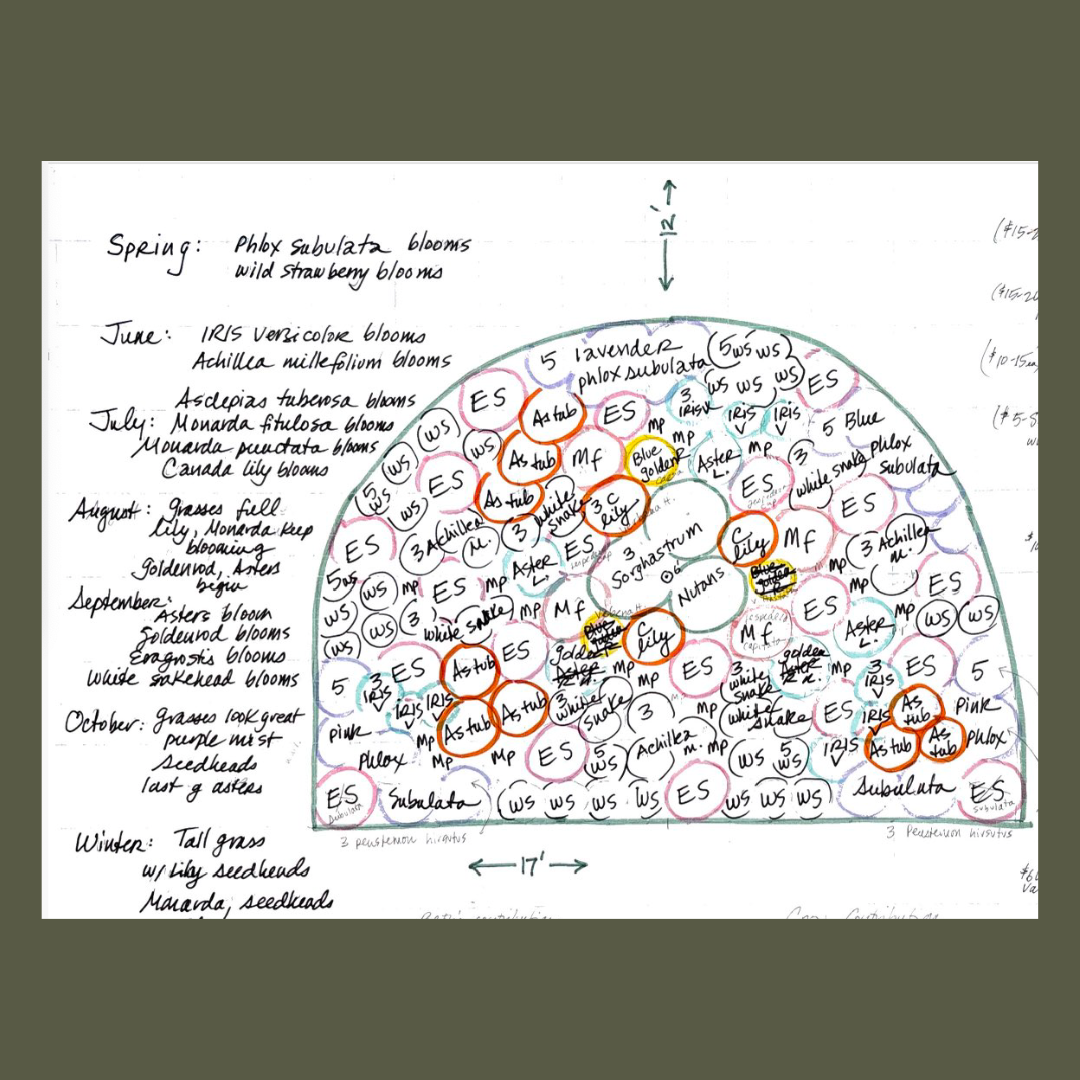 Spring: Phlox subulata blooms
wild strawberry blooms
June: IRIS versicolor blooms
Achillea millefolium blooms
Asclepias tuberosa blooms
July: Monarda fitulosa blooms
Monarda punctata blooms
Canada lily blooms
August: Grasses full
lily, Monarda keep
blooming
goldenrod, Asters
begin
September:
Asters bloom
Goldenrod blooms
Eragnostis blooms
White snakehead blooms
October: grasses look great
purple mist
seedheads
last g asters
Winter: Tall grass
w/ Lily seedheads
Monarda, seedheads
N
($15-2
($15-20
($10-15ea
($5-8
5 lavender
phlox subulata
5 ws ws
ws ws ws
ES
ES
As tub
ES
3
IRIS V
IRIS
V
IRIS
V
5 Blue
phlox
subulata
mp
mp
mp
ws
ws
ws
As tub
Mf
Blue
golden R
Aster
L.
3
white snake
5
ws
ws
ES
As tub
white
snake
3
3 C
lily
ES
ES
ES
3 Achillea
M.
ES
3
Sorghastrum
Nutans
6
C
lily
Mf
3 Achillea
m.
5 ws
ws
mp
ES
mp
Aster
L.
Blue
golden
R
mp
mp
ES
ws
ws
3
white snake
mp
Mf
Verbena H
C
lily
Mf
capitata
ES
Aster
L.
mp
ws
ws
ws
5
ES
As tub
ES
golden
Aster
mp
mp
ES
3
white
snake
golden
Aster
mp
3
IRIS
V
ES
5
3
IRIS
V
IRIS
V
IRIS
As tub
As tub
3
white
snake
3
mp
white
snake
ES
IRIS
V
As
tub
Pink
pink
Phlox
mp
mp
mp
ES
5
ws
Achillea
m.
mp
ws
5
ws
IRIS
V
As tub
As
tub
Phlox
ES
Subulata
Subulata
ws
ws
ws
ws
ES
ws
ws
ws
Subulata
ES
Subulata
3 penstemon hirsutus
3 Penstemon hirsutus
17'
$6